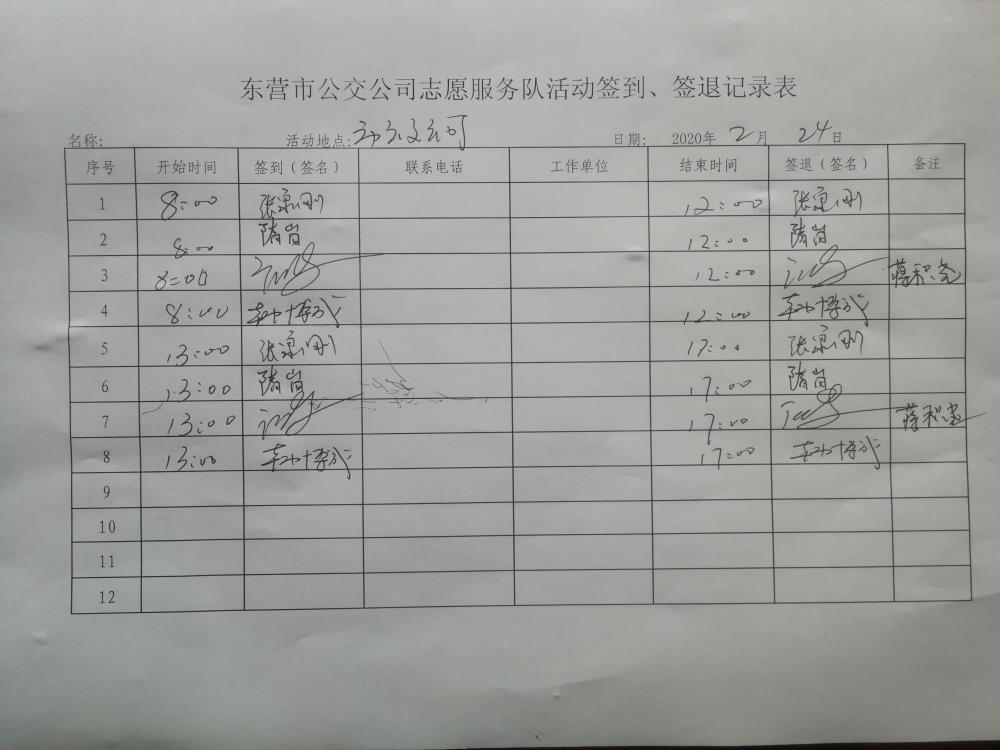 东营市公交公司志愿服务队活动签到、签退记录表
名称: 活动地点: 日期: 2020年 2月 24日
序号 开始时间 签到（签名） 联系电话 工作单位 结束时间 签退（签名） 备注
1 8:00 12:00
2 8:00 隋岩 12:00 隋岩
3 8:00 12:00
4 8:00 12:00
5 13:00 17:00
6 13:00 隋岩 17:00 隋岩
7 13:00 17:00
8 13:00 17:00
9
10
11
12